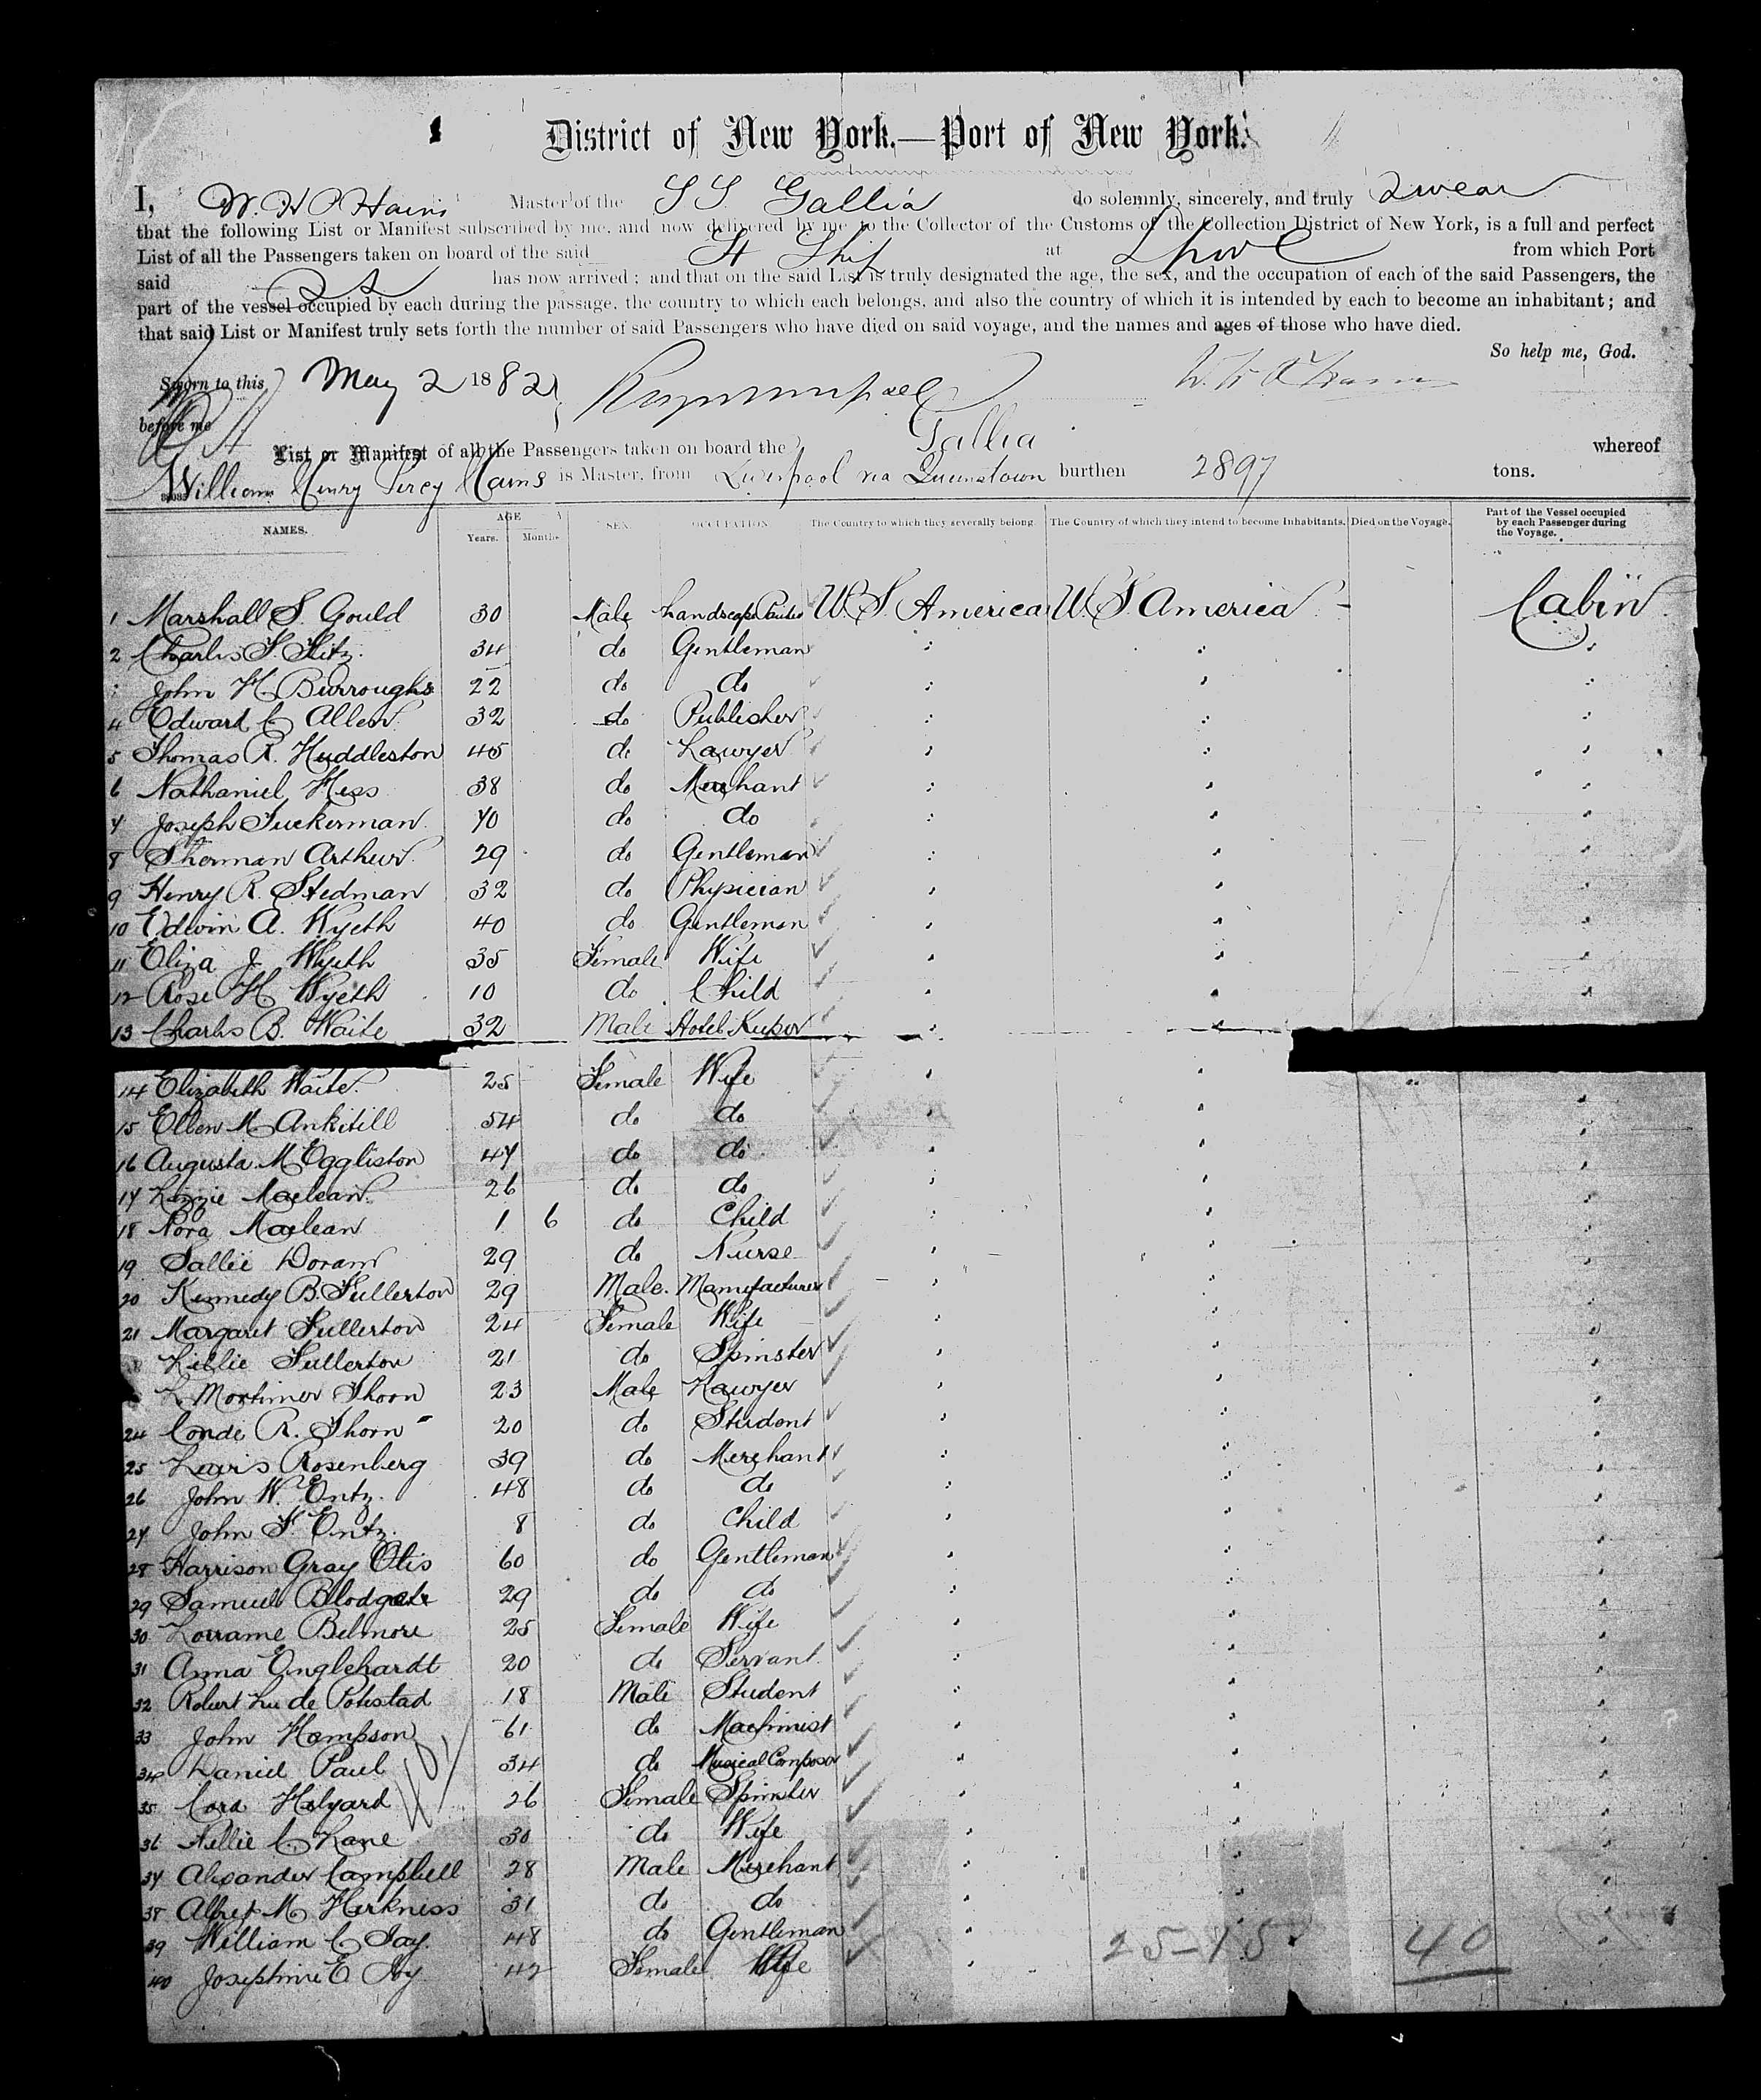 District of New York.—Port of New York.
I, W. H. P. Hains Master of the S S Gallia do solemnly, sincerely, and truly swear
that the following List or Manifest subscribed by me, and now delivered by me to the Collector of the Customs of the Collection District of New York, is a full and perfect
List of all the Passengers taken on board of the said St Ship at Lpool from which Port
said has now arrived; and that on the said List is truly designated the age, the sex, and the occupation of each of the said Passengers, the
part of the vessel occupied by each during the passage, the country to which each belongs, and also the country of which it is intended by each to become an inhabitant; and
that said List or Manifest truly sets forth the number of said Passengers who have died on said voyage, and the names and ages of those who have died.
So help me, God.
Sworn to this May 2 1882
before me
List or Manifest of all the Passengers taken on board the Gallia whereof
William Henry Percy Hains is Master, from Liverpool via Queenstown burthen 2897 tons.
NAMES. AGE Years. Months SEX. OCCUPATION The Country to which they severally belong. The Country of which they intend to become Inhabitants. Died on the Voyage. Part of the Vessel occupied by each Passenger during the Voyage.
1 Marshall S. Gould 30 Male Landscape Painter U.S. America U.S. America Cabin
2 Charles F. Fitz 34 do Gentleman
John H Burroughs 22 do do
4 Edward C Allen 32 do Publisher
5 Thomas R. Huddleston 45 do Lawyer
6 Nathaniel Hess 38 do Merchant
7 Joseph Tuckerman 70 do do
8 Sherman Arthur 29 do Gentleman
9 Henry R. Stedman 32 do Physician
10 Edwin A. Wyeth 40 do Gentleman
11 Eliza J Wyeth 35 Female Wife
12 Rose H Wyeth 10 do Child
13 Charles B. Waite 32 Male Hotel Keeper
14 Elizabeth Waite 25 Female Wife
15 Ellen M Ankitill 54 do do
16 Augusta M Eggliston 47 do do
17 Lizzie Maclean 26 do do
18 Nora Maclean 1 6 do Child
19 Sallie Doran 29 do Nurse
20 Kennedy B. Fullerton 29 Male. Manufacturer
21 Margaret Fullerton 24 Female Wife
Lillie Fullerton 21 do Spinster
L Mortimer Thorn 23 Male Lawyer
24 Conde R. Thorn 20 do Student
25 Louis Rosenberg 39 do Merchant
26 John W. Entz. 48 do do
27 John F. Entz. 8 do Child
28 Harrison Gray Otis 60 do Gentleman
29 Samuel Blodgett 29 do do
30 Lorraine Belmore 25 Female Wife
31 Anna Englehardt 20 do Servant
32 Robert Lu de Potestad 18 Male Student
33 John Hampson 61 do Machinist
34 Daniel Paul 34 do Musical Composer
35 Cora Halyard 26 Female Spinster
36 Nellie C. Lane 30 do Wife
37 Alexander Campbell 28 Male Merchant
38 Alfred M Herkness 31 do do
39 William C Joy 48 do Gentleman
40 Josephine E Joy 42 Female Wife
25-15 40